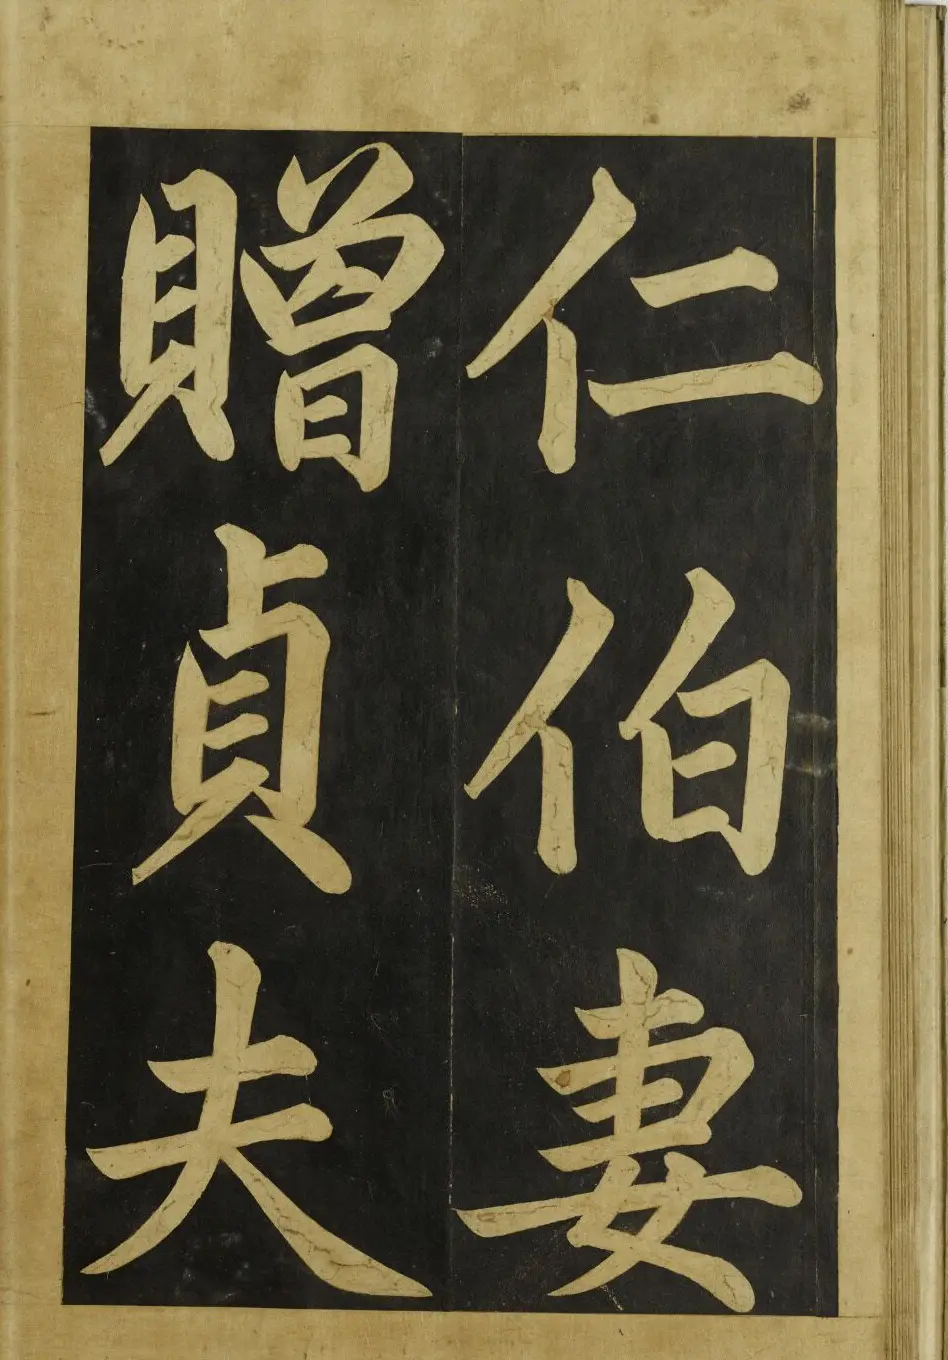 仁伯妻
贈貞夫